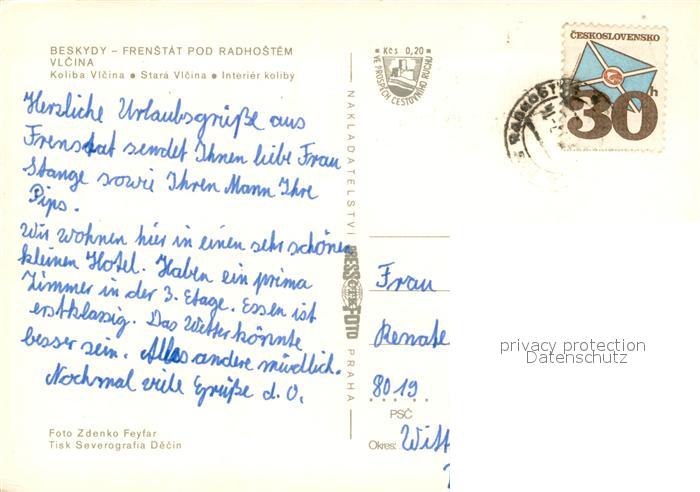 BESKYDY – FRENŠTÁT POD RADHOŠTĚM
VLČINA
Koliba Vlčina • Stará Vlčina • Interiér koliby
Herzliche Urlaubsgrüße aus
Frenstat sendet Ihnen liebe Frau
Stange sowie Ihren Mann Ihre
Pips.
Wir wohnen hier in einen sehr schönen
kleinen Hotel. Haben ein prima
Zimmer in der 3. Etage. Essen ist
erstklassig. Das Wetter könnte
besser sein. Alles andere mündlich.
Nochmal viele Grüße d. O.
Foto Zdenko Feyfar
Tisk Severografia Děčín
NAKLADATELSTVÍ
PRESSFOTO
PRAHA
Kčs 0,20
VE PROSPĚCH CESTOVNÍHO RUCHU
ČESKOSLOVENSKO
30h
Frau
Renate
8019
PSČ
Okres: Witt
privacy protection
Datenschutz